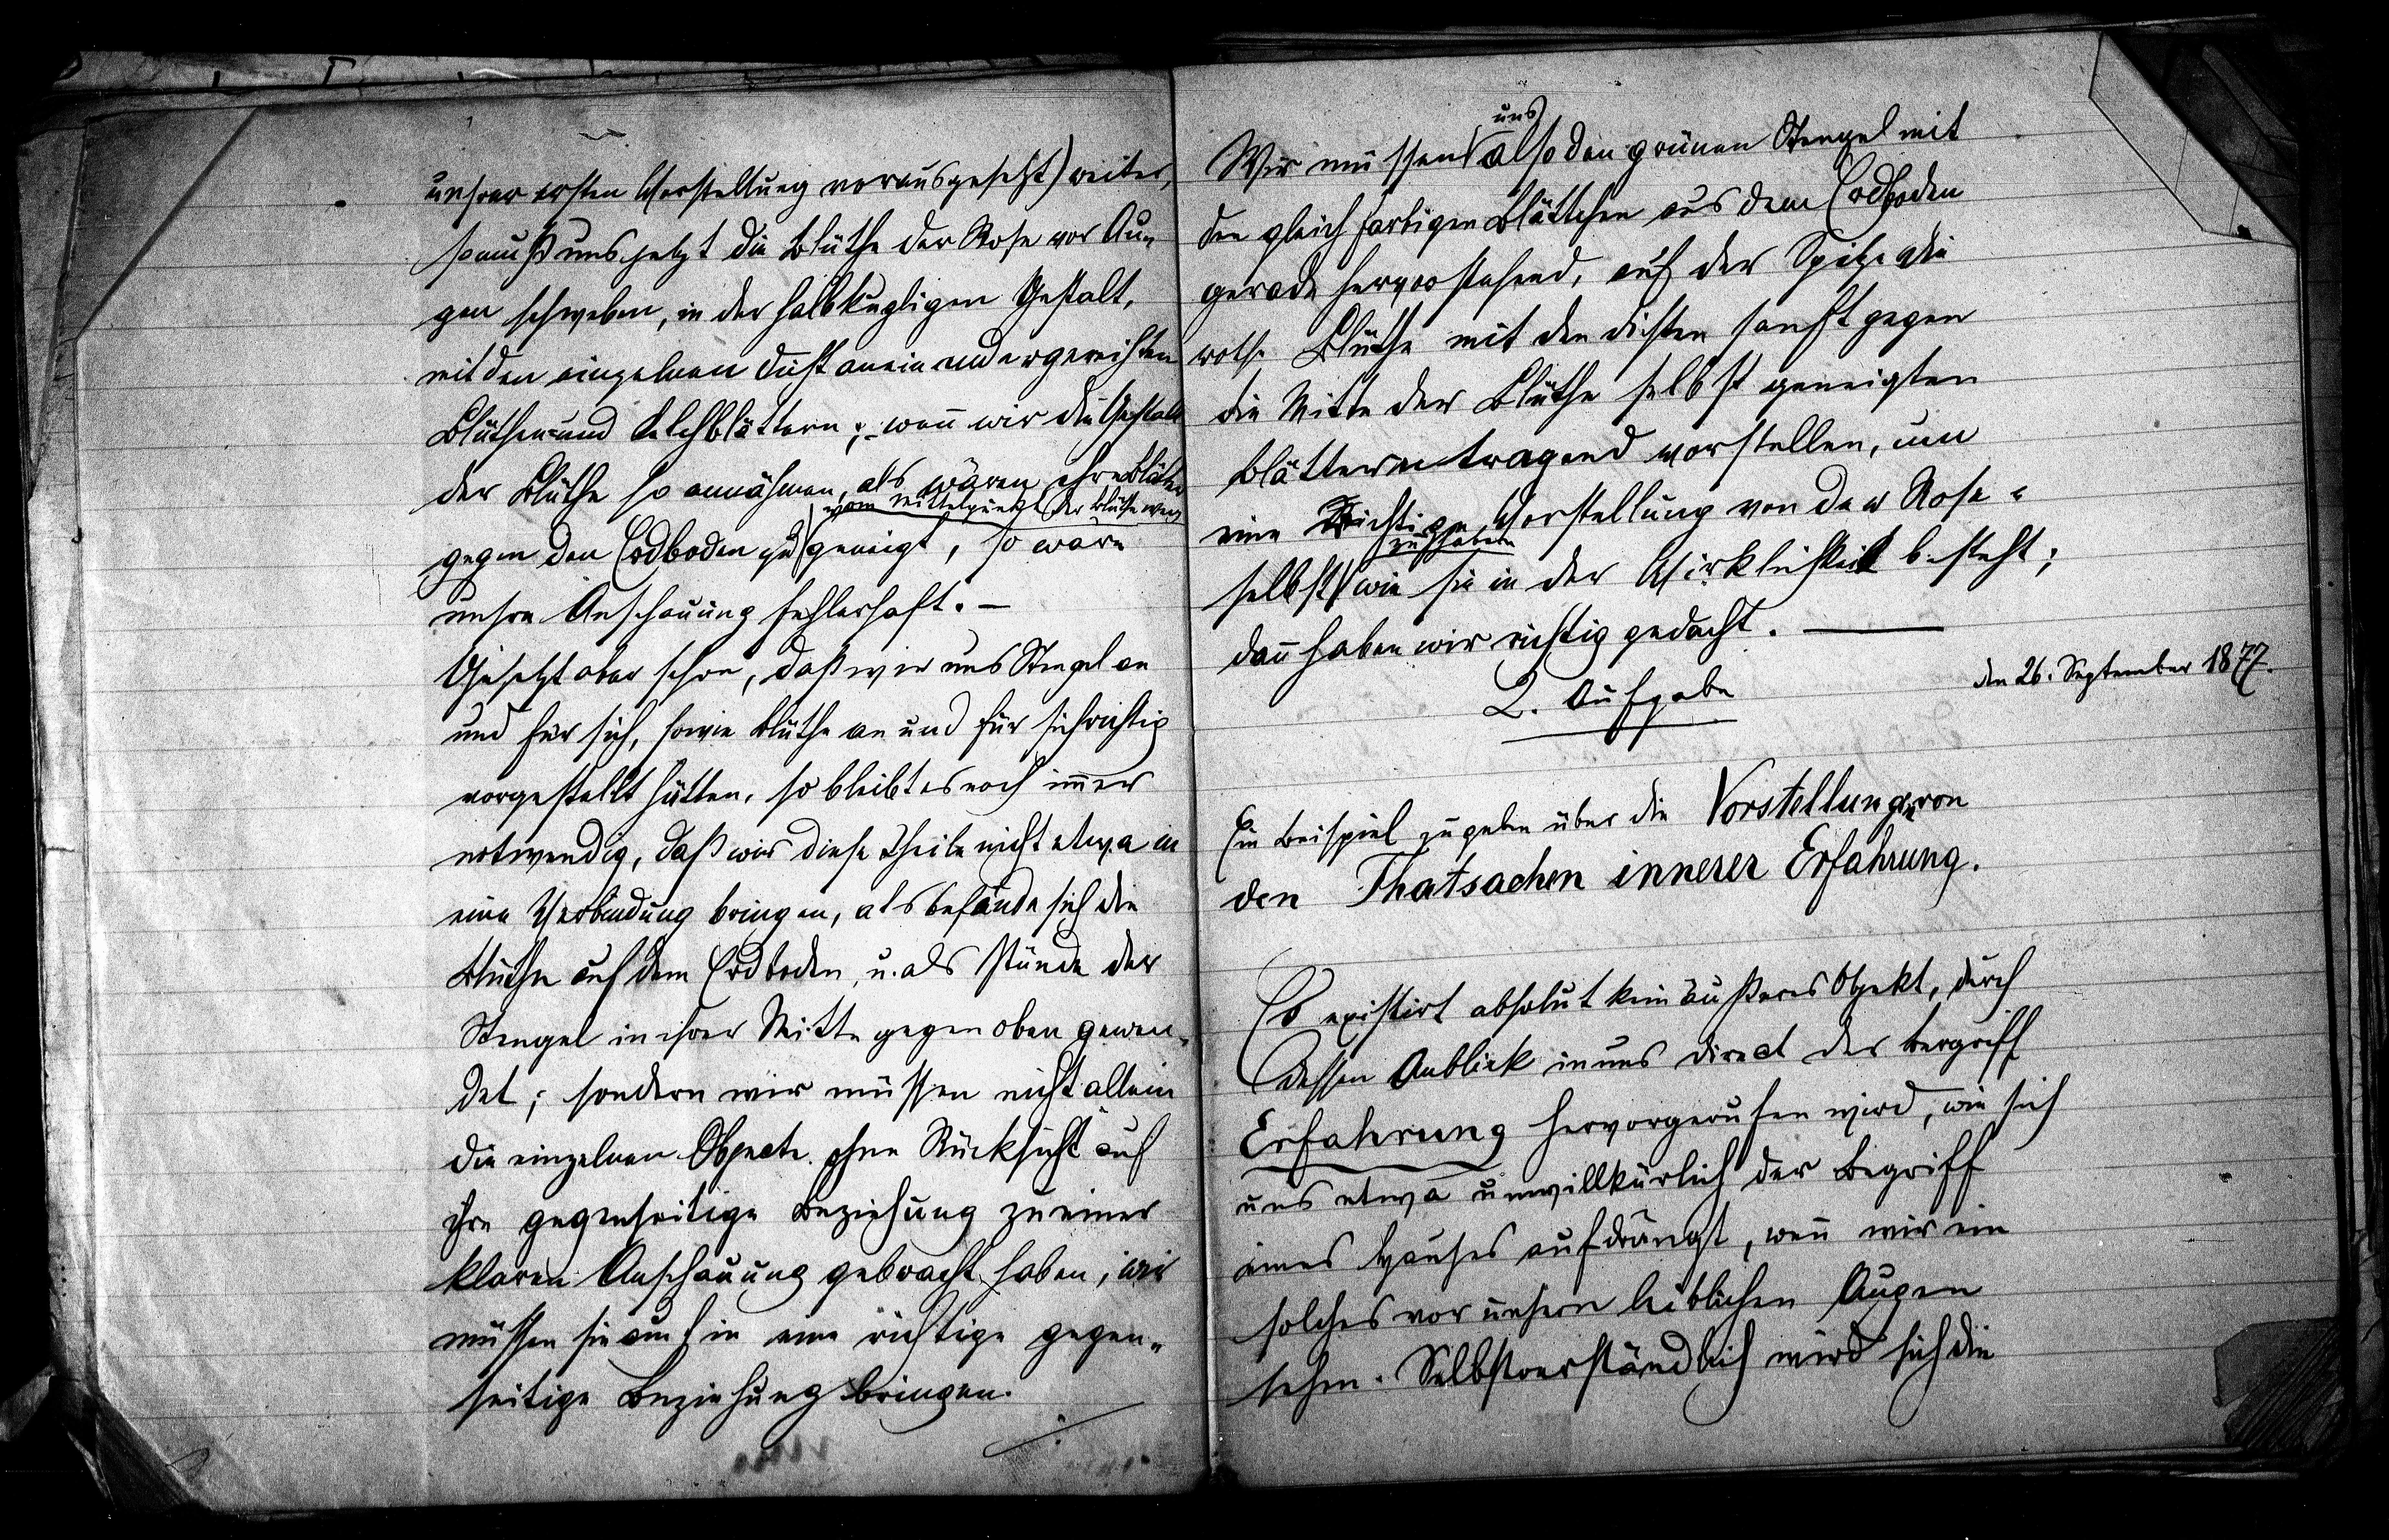 unsrer ersten Vorstellung vorausgesetzt) weiter,
so muß uns jetzt die Blüthe der Rose vor Au-
gen schweben, in der halbkugligen Gestalt,
mit den einzelnen dicht aneinandergereihten
Blüthen- und Kelchblättern; – wen̄ wir die Gestalt
der Blüthe so annähmen, als wären ihre Blätter
vom Mittelpunkte der Blüthe weg
gegen den Erdboden zu geneigt, so wäre
unsre Anschauung fehlerhaft. –
Gesetzt aber schon, daß wir uns Stengel an
und für sich, sowie Blüthe an und für sich richtig
vorgestellt hätten, so bleibt es noch im̄er
notwendig, daß wir diese Theile nicht etwa in
eine Verbindung bringen, als befände sich die
Blüthe auf dem Erdboden, u. als stünde der
Stengel in ihrer Mitte gegen oben gewen-
det; sondern wir müssen nicht allein
die einzelnen Objecte ohne Rücksicht auf
ihre gegenseitige Beziehung zu einer
klaren Anschauung gebracht haben, wir
müssen sie auch in eine richtige gegen-
seitige Beziehung bringen.
uns
Wir müssen also den grünen Stengel mit
den gleichfarbigen Blättchen aus dem Erdboden
gerade hervorstehend, auf der Spitze die
rothe Blüthe mit den dichten sanft gegen
die Mitte der Blüthe selbst geneigten
Blättern tragend vorstellen, um
eine Richtige Vorstellung von der Rose
zu haben
selbst wie sie in der Wirklichkeit besteht;
dan̄ haben wir richtig gedacht. —
den 26. September 1877.
2. Aufgabe
Ein Beispiel zu geben über die Vorstellung von
den Thatsachen innerer Erfahrung.
Es existirt absolut kein äußeres Objekt, durch
dessen Anblick in uns direct der Begriff
Erfahrung hervorgerufen wird, wie sich
uns etwa unwillkürlich der Begriff
eines Hauses aufdrängt, wen̄ wir ein
solches vor unsern leiblichen Augen
sehen. Selbstverständlich wird sich die